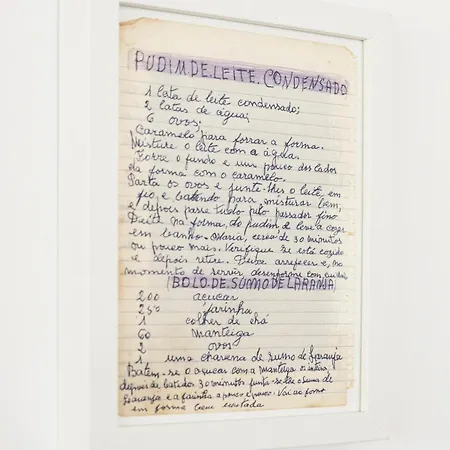 PUDIM.DE.LEITE.CONDENSADO
1 lata de leite condensado;
2 latas de água;
6 ovos;
Caramelo para forrar a forma.
Misture o leite com a água.
Forre o fundo e um pouco dos lados
da forma com o caramelo.
Parta os ovos e junte-lhes o leite, em
fio, e batendo para misturar bem,
e depois passe tudo pelo passador fino
Deite na forma do pudim e leve a cozer
em banho-Maria, cerca de 30 minutos
ou pouco mais. Verifique se está cozido
e depois retire. Deixe arrefecer e, no
momento de servir, desenforme com cuidado
BOLO.DE.SUMO.DE.LARANJA
200 açucar
250 farinha
1 colher de chá
60 manteiga
2 ovos
1 uma chavena de sumo de laranja
Batem-se o açucar com a manteiga
depois de batidos 30 minutos junta-se-lhe o sumo de
laranja e a farinha a pouco e pouco. Vai ao forno
em forma bem untada